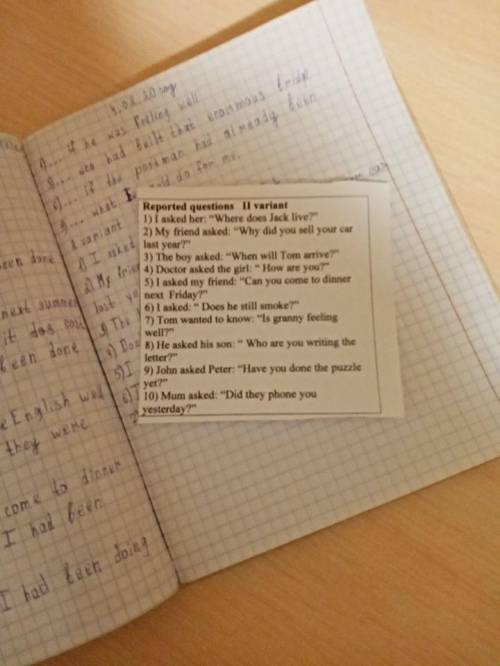 if he was feeling well
who had built that enormous bridge
if the postman had already been
what do for me.
Reported questions II variant
1) I asked her: “Where does Jack live?”
2) My friend asked: “Why did you sell your car
last year?”
3) The boy asked: “When will Tom arrive?”
4) Doctor asked the girl: “ How are you?”
5) I asked my friend: “Can you come to dinner
next Friday?”
6) I asked: “ Does he still smoke?”
7) Tom wanted to know: “Is granny feeling
well?”
8) He asked his son: “ Who are you writing the
letter?”
9) John asked Peter: “Have you done the puzzle
yet?”
10) Mum asked: “Did they phone you
yesterday?”
variant
1) I asked
2) My
last
3) The
5) I
been done
next summer
it
been done
English
they were
come to dinner
I had been
I had been doing